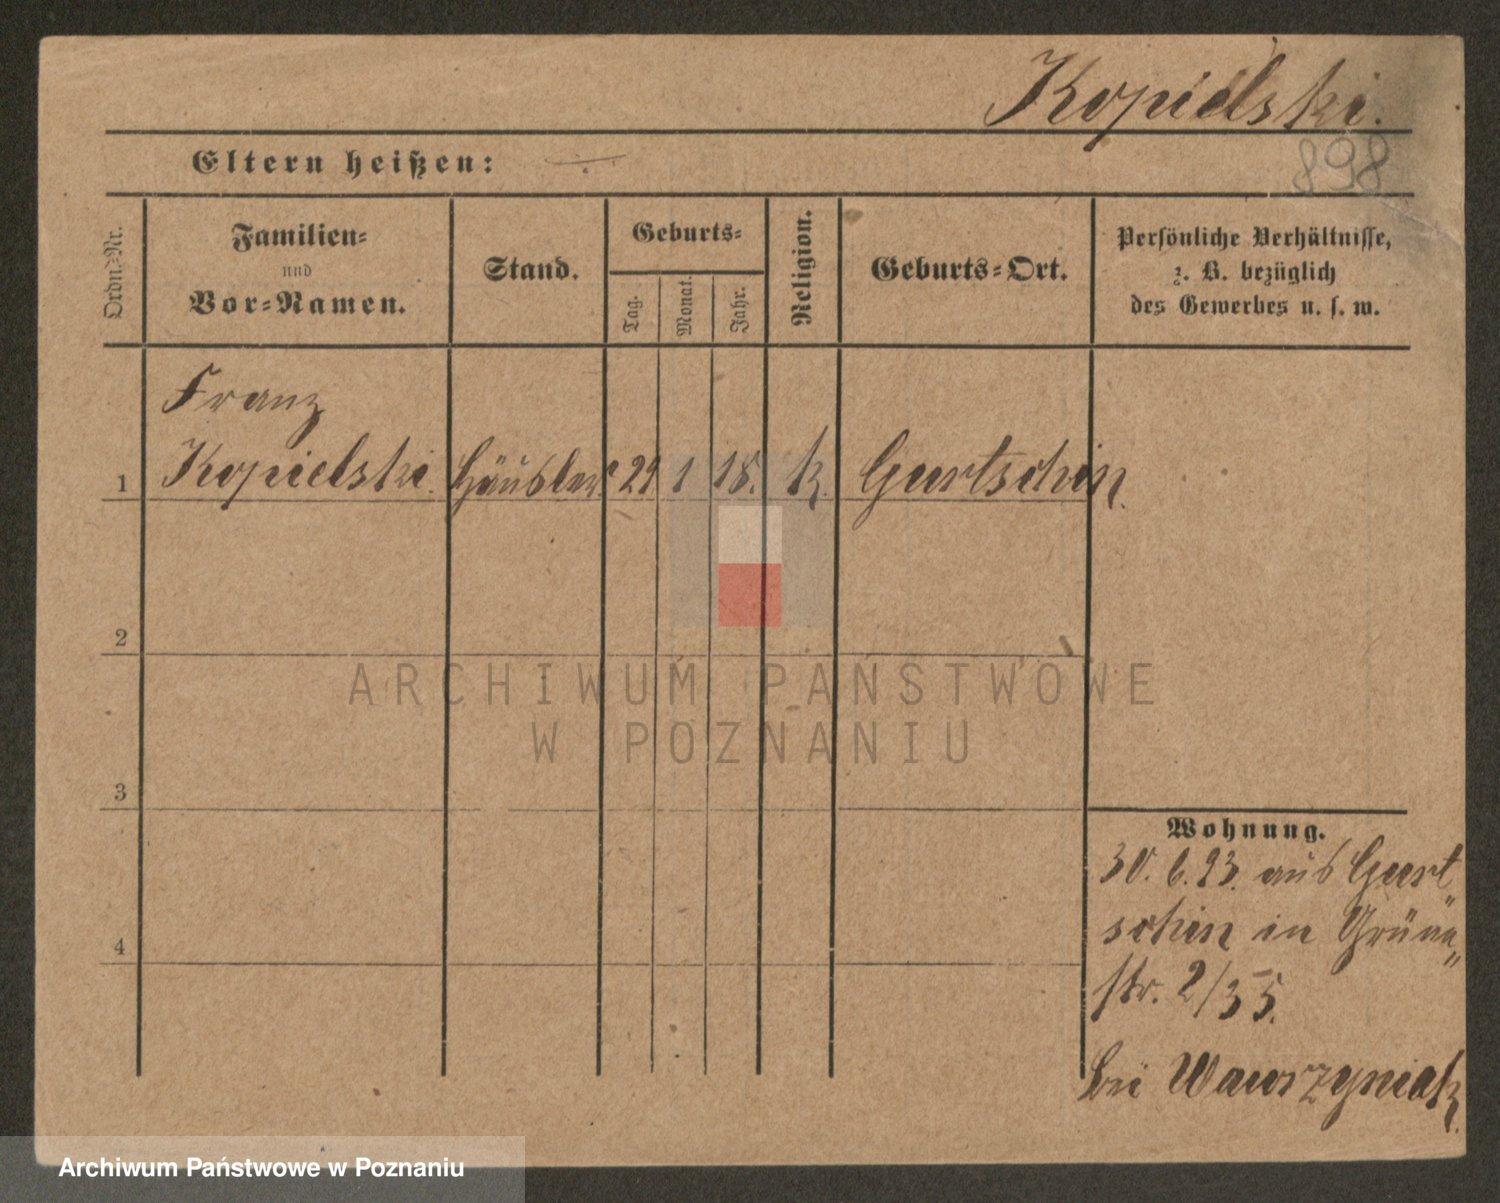 Kopielski.
Eltern heißen: —
898
Ordn.-Nr.
Familien-
und
Vor-Namen.
Stand.
Geburts-
Tag.
Monat.
Jahr.
Religion.
Geburts-Ort.
Persönliche Verhältnisse,
z. B. bezüglich
des Gewerbes u. s. w.
Franz
1 Kopielski. Häusler 29 1 18. k. Gurtschin.
2
3
4
ARCHIWUM PAŃSTWOWE
W POZNANIU
Wohnung.
30. 6. 93. aus Gurt
schin in Grüne
str. 2/35.
bei Wawrzyniak.
Archiwum Państwowe w Poznaniu